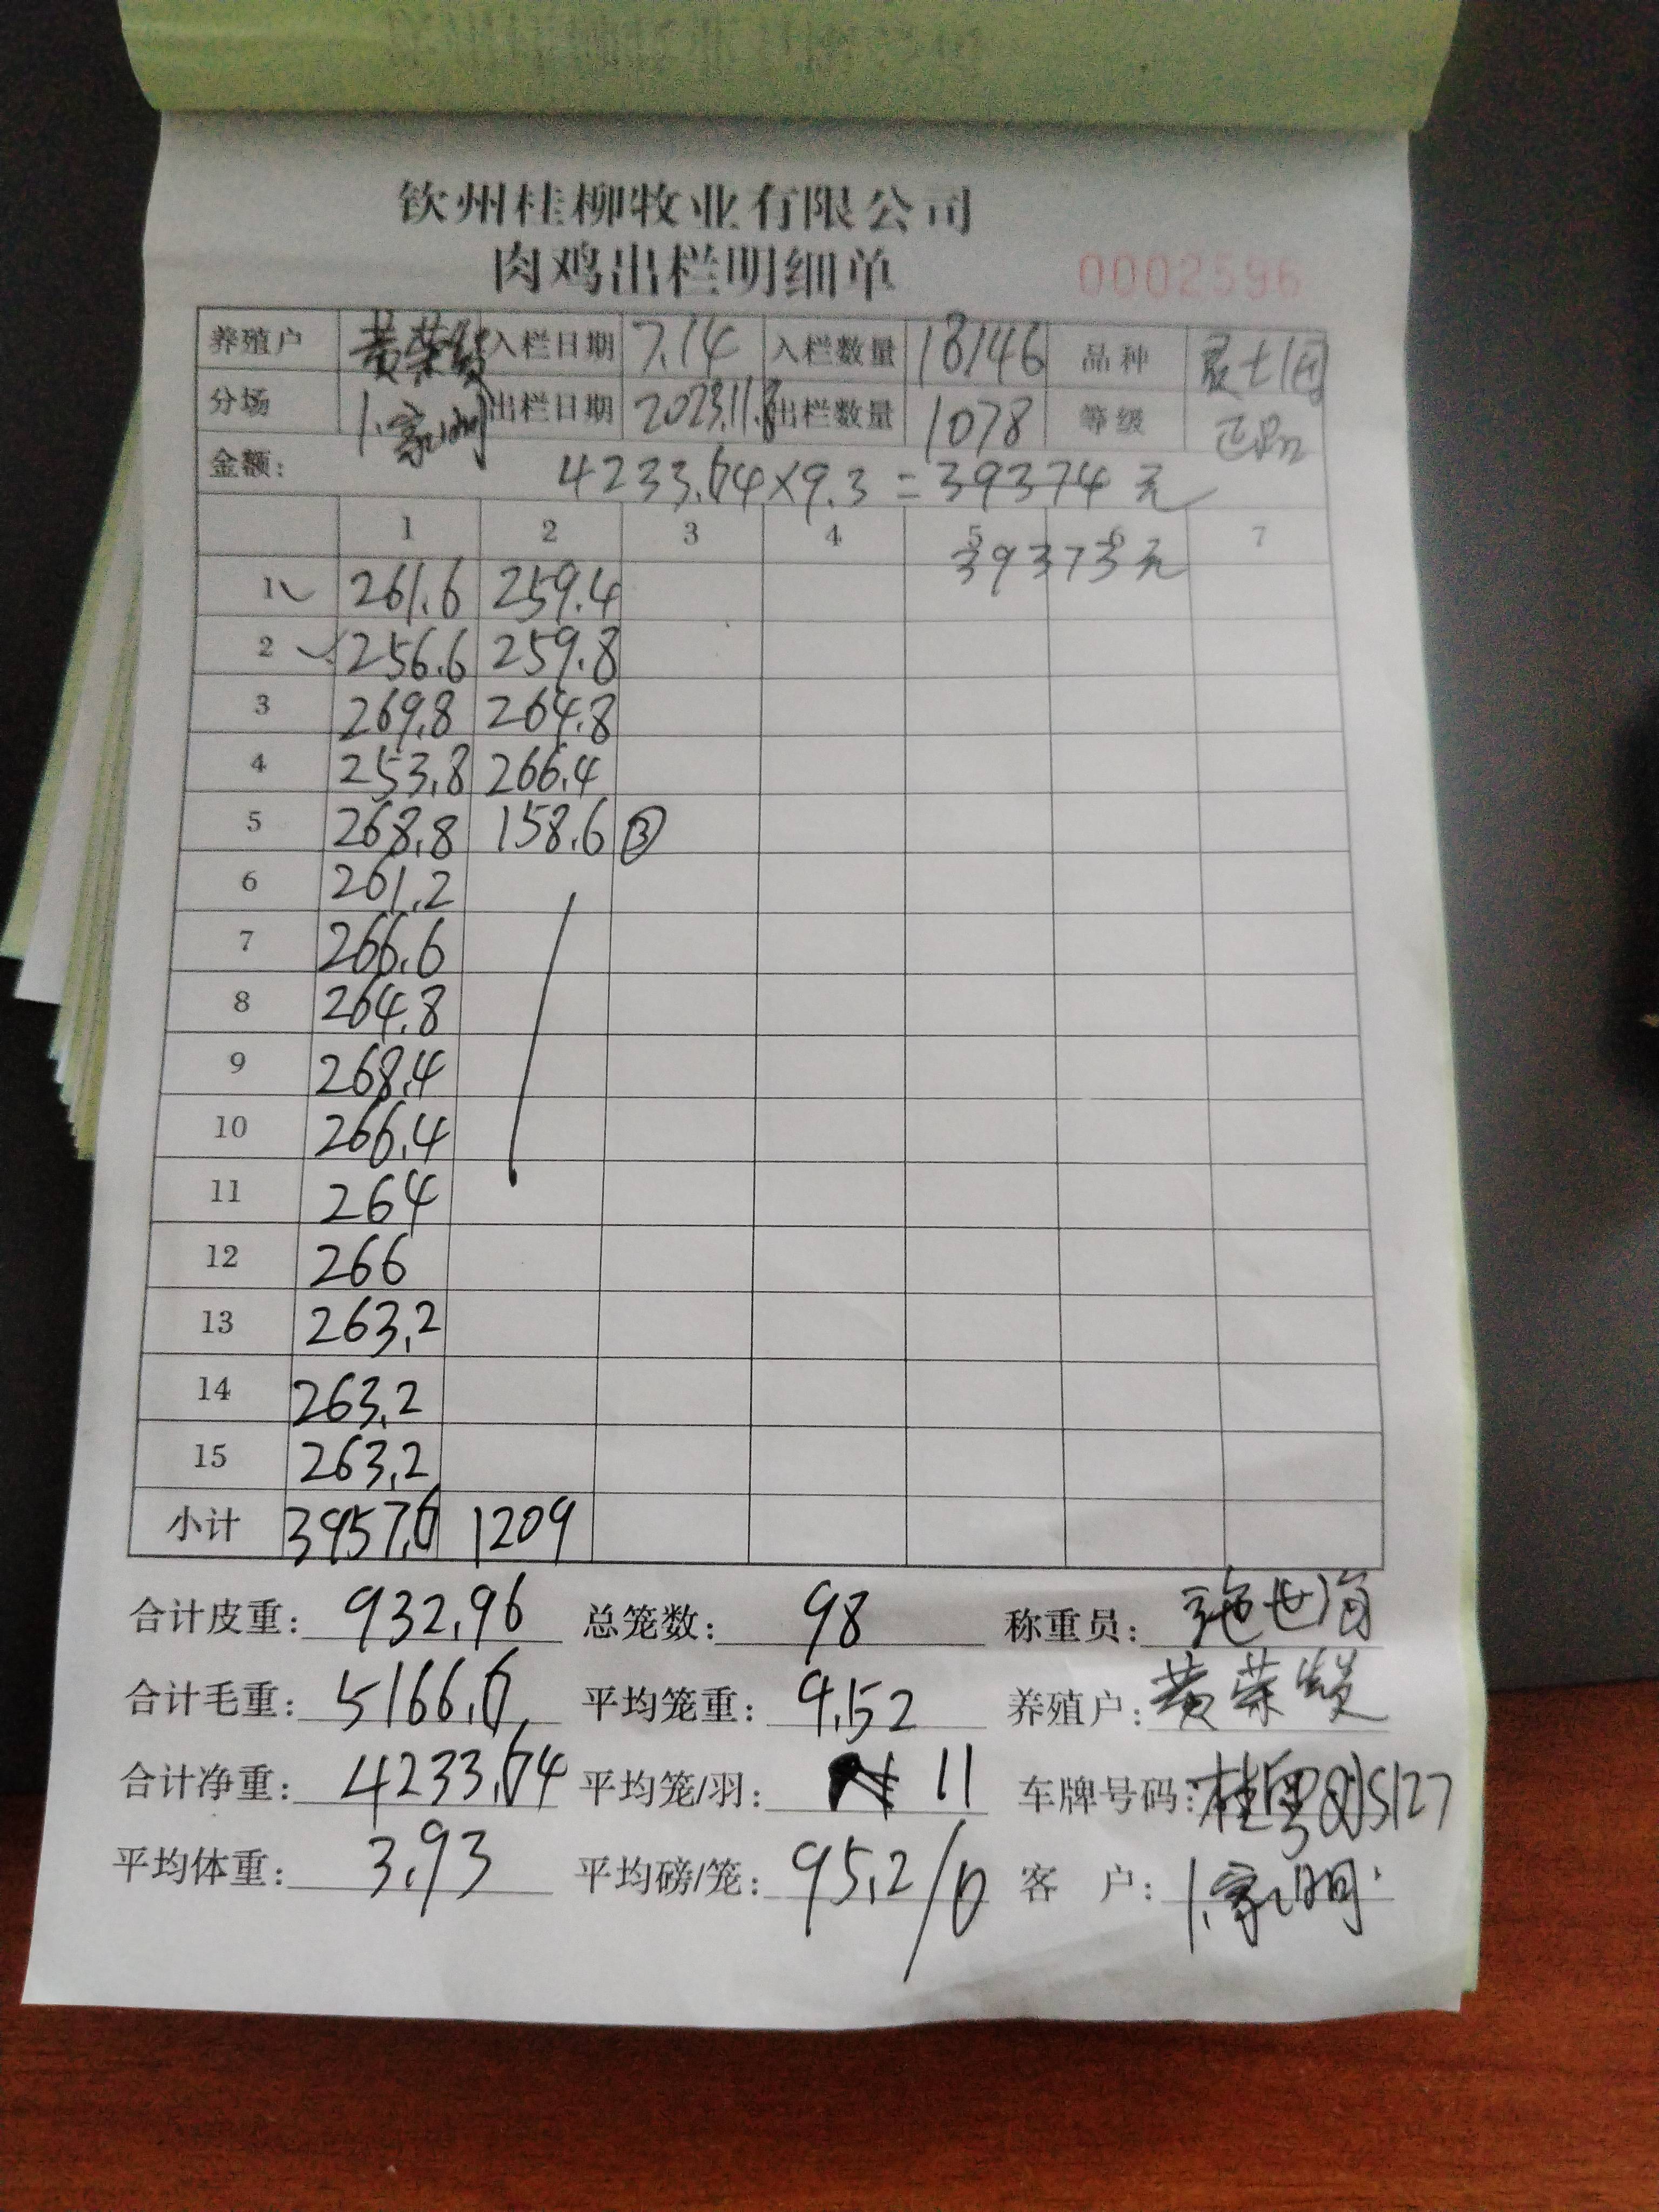 钦州桂柳牧业有限公司
肉鸡出栏明细单 0002596
养殖户 黄荣发 入栏日期 7.14 入栏数量 18146 品种
分场 出栏日期 2023.11.8 出栏数量 1078 等级 正品
金额: 4233.64×9.3=39374元
1 2 3 4 5 6 7
39373元
1 261.6 259.4
2 256.6 259.8
3 269.8 264.8
4 253.8 266.4
5 268.8 158.6 ③
6 261.2
7 266.6
8 264.8
9 268.4
10 266.4
11 264
12 266
13 263.2
14 263.2
15 263.2
小计 3957.6 1209
合计皮重: 932.96 总笼数: 98 称重员:
合计毛重: 5166.6 平均笼重: 9.52 养殖户: 黄荣发
合计净重: 4233.64 平均笼/羽: 11 车牌号码:
平均体重: 3.93 平均磅/笼: 95.2/6 客 户: